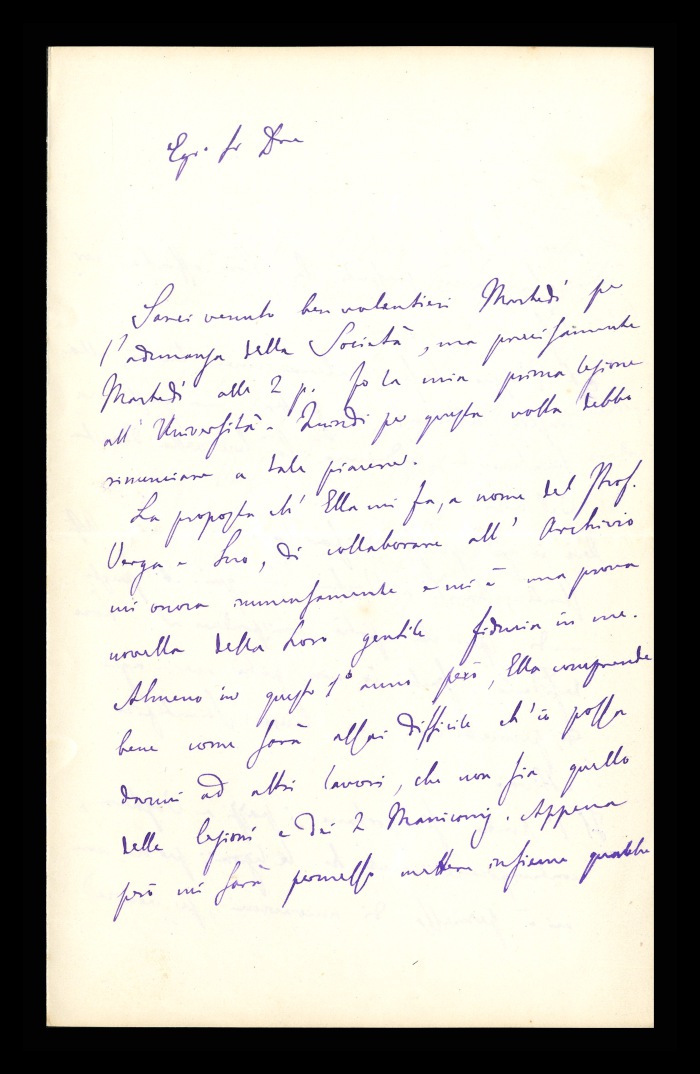 Egr. Sr Dre
Sarei venuto ben volentieri Martedì per
l'adunanza della Società, ma precisamente
Martedì alle 2 p. fo la mia prima lezione
all'Università. Quindi per questa volta debbo
rinunciare a tale piacere.
La proposta ch'Ella mi fa, a nome del Prof.
Verga e Suo, di collaborare all'Archivio
mi onora immensamente e mi è una prova
novella della Loro gentile fiducia in me.
Almeno in questo 1° anno però, Ella comprende
bene come sarà assai difficile ch'io possa
darmi ad altri lavori, che non sia quello
delle lezioni e dei 2 Manicomj. Appena
però mi sarà permesso mettere insieme qualche